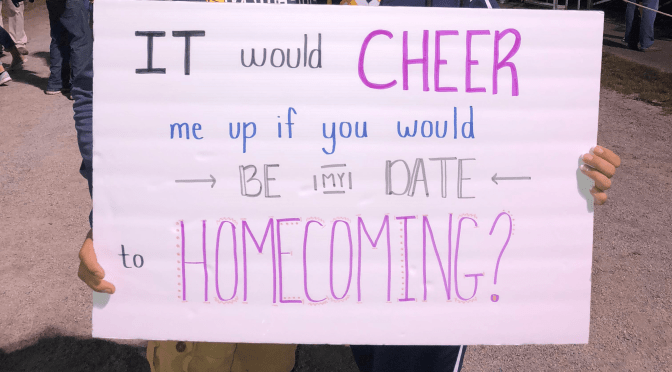 IT would CHEER
me up if you would
→ BE MY DATE ←
to HOMECOMING?